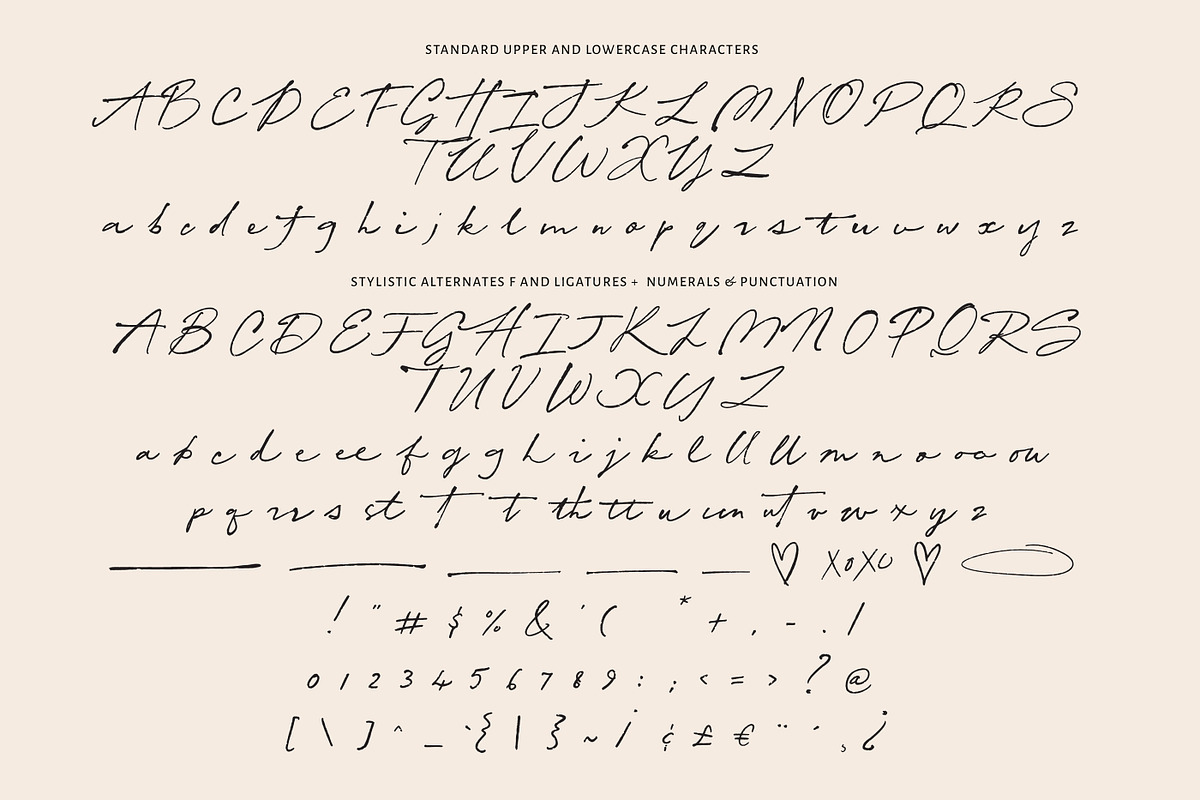 STANDARD UPPER AND LOWERCASE CHARACTERS
A B C D E F G H I J K L M N O P Q R S
T U V W X Y Z
a b c d e f g h i j k l m n o p q r s t u v w x y z
STYLISTIC ALTERNATES F AND LIGATURES + NUMERALS & PUNCTUATION
A B C D E F G H I J K L M N O P Q R S
T U V W X Y Z
a b c d e ee f g g h i j k l ll ll m n o oo ow
p q rr s st t t th tt u um ut v w x y z
♡ XOXO ♡
! " # $ % & ' ( * + , - . /
0 1 2 3 4 5 6 7 8 9 : ; < = > ? @
[ \ ] ^ _ ` { | } ~ ¡ ¢ £ € ¨ ´ ¸ ¿